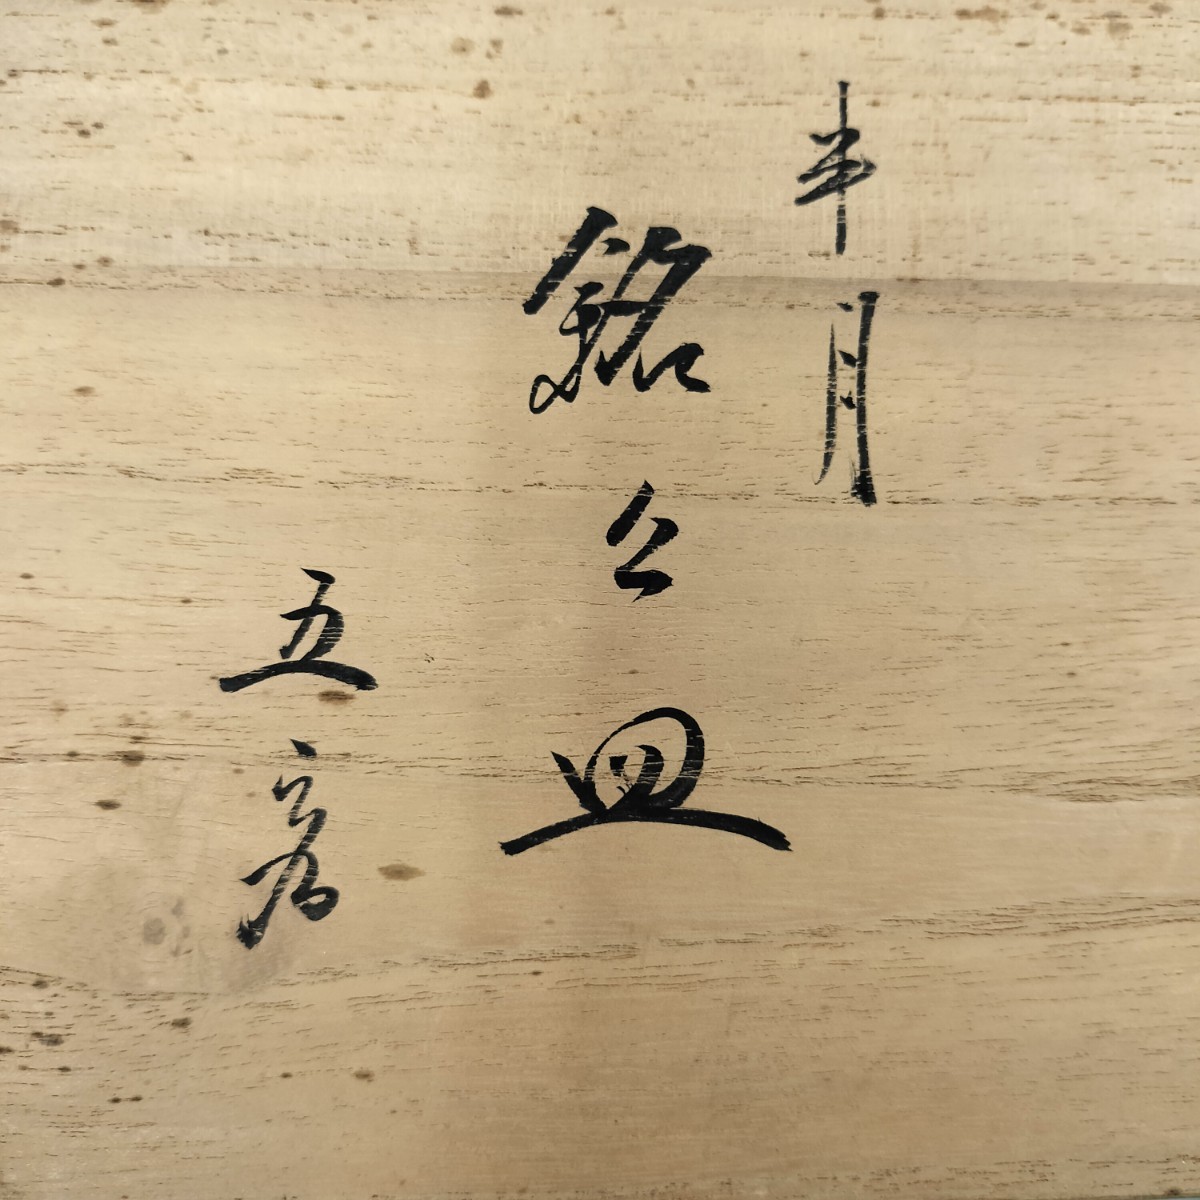 半月
銘々皿
五客